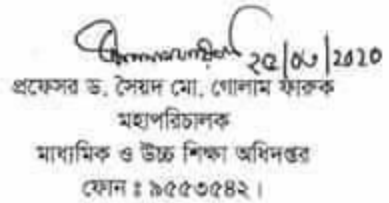 ২৫/০৬/2020
প্রফেসর ড. সৈয়দ মো. গোলাম ফারুক
মহাপরিচালক
মাধ্যমিক ও উচ্চ শিক্ষা অধিদপ্তর
ফোন ঃ ৯৫৫৩৫৪২।